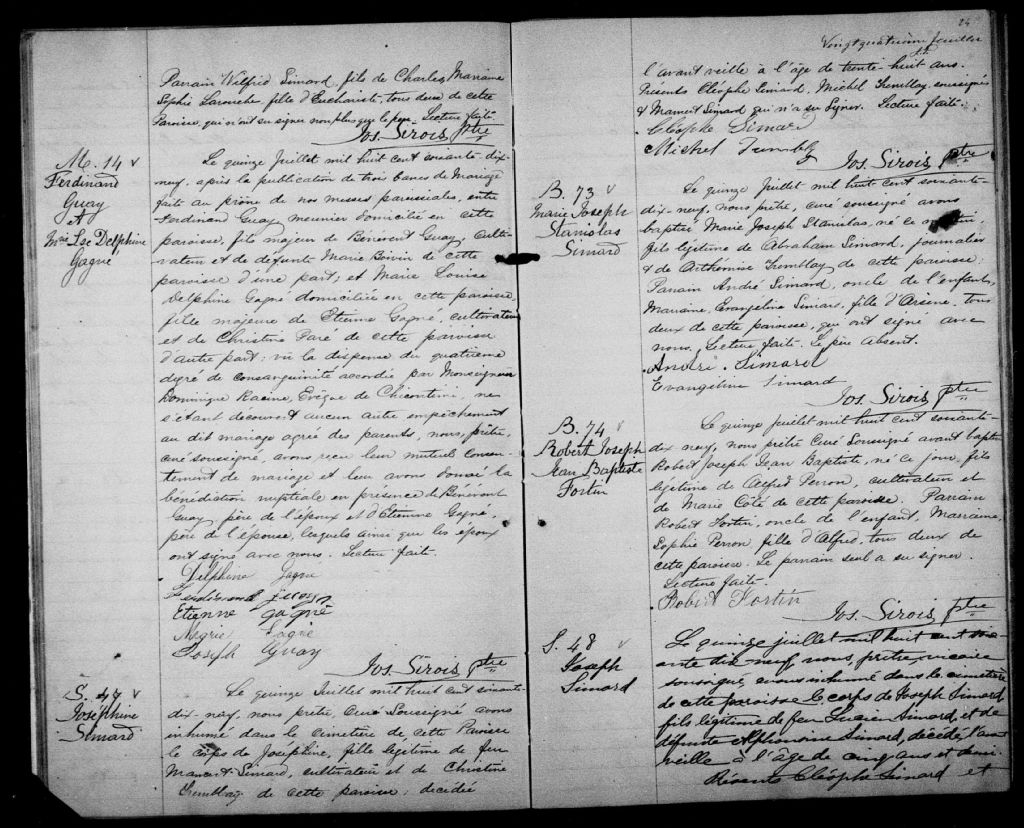 Parrain Wilfrid Simard, fils de Charles, Marraine
Sophie Larouche, fille d'Euchariste, tous deux de cette
Paroisse, qui n'ont su signer non plus que le père. Lecture faite.
Jos. Sirois ptre
M. 14
Ferdinand
Guay
et
Mie Lse Delphine
Gagné
Le quinze Juillet mil huit cent soixante-dix-
neuf, après la publication de trois bancs de Mariage
faite au prône de nos messes paroissiales, entre
Ferdinand Guay meunier domicilié en cette
paroisse, fils majeur de Bénérent Guay, culti-
vateur et de défunte Marie Boivin de cette
paroisse d'une part; et Marie Louise
Delphine Gagné domiciliée en cette paroisse,
fille majeure de Etienne Gagné, cultivateur
et de Christine Paré de cette paroisse
d'autre part: vu la dispense du quatrième
degré de consanguinité accordée par Monseigneur
Dominique Racine, Evêque de Chicoutimi, ne
s'étant découvert aucun autre empêchement
au dit mariage agréé des parents, nous, prêtre,
curé soussigné, avons reçu leur mutuel consen-
tement de mariage et leur avons donné la
bénédiction nuptiale en présence de Bénérent
Guay père de l'époux et d'Etienne Gagné,
père de l'épouse, lesquels ainsi que les époux
ont signé avec nous. Lecture fait.
Delphine Gagne
Ferdinand Guay
Etienne gagné
Marie Gagné
Joseph Guay
Jos. Sirois ptre
S. 47
Joséphine
Simard
Le quinze Juillet mil huit cent soixante-
dix-neuf, nous prêtre, Curé Soussigné avons
inhumé dans le cimetière de cette Paroisse
le corps de Joséphine, fille légitime de feu
Simard, cultivateur et de Christine
Tremblay de cette paroisse, décédée
24
Vingt quatrième feuillet
l'avant veille à l'âge de trente huit ans.
Présents Cléophe Simard, Michel Tremblay, soussignés
& Simard qui n'a su signer. Lecture faite.
Cléophe Simard
Michel Trembly
Jos. Sirois ptre
B. 73
Marie Joseph
Stanislas
Simard
Le quinze Juillet mil huit cent soixante-
dix-neuf, nous prêtre, curé soussigné avons
baptisé Marie Joseph Stanislas, né ce
fils légitime de Abraham Simard, journalier
& de Arthémise Tremblay de cette paroisse;
Parrain André Simard, oncle de l'enfant,
Marraine, Evangéline Simard, fille d'Arsène, tous
deux de cette paroisse, qui ont signé avec
nous, Lecture fait. Le père absent.
André Simard
Evangeline Simard
Jos. Sirois ptre
B. 74
Robert Joseph
Jean Baptiste
Fortin
Le quinze juillet mil huit cent soixante-
dix neuf, nous prêtre Curé Soussigné avont baptisé
Robert Joseph Jean Baptiste, né ce jour, fils
légitime de Alfred Perron, cultivateur et
de Marie Coté de cette paroisse. Parrain
Robert Fortin, oncle de l'enfant, Marraine,
Sophie Perron, fille d'Alfred, tous deux de
cette paroisse. Le parrain seul a su signer.
Lecture faite.
Robert Fortin
Jos. Sirois ptre
S. 48
Joseph
Simard
Le quinze juillet mil huit cent soix-
ante dix-neuf, nous, prêtre, vicaire
soussigné avons inhumé dans le cimetière
de cette paroisse le corps de Joseph Simard
fils légitime de feu Lucien Simard, et de
défunte Alphonsine Simard, décédé l'avant
veille à l'âge de cinq ans et demi
Présents Cléophe Simard et